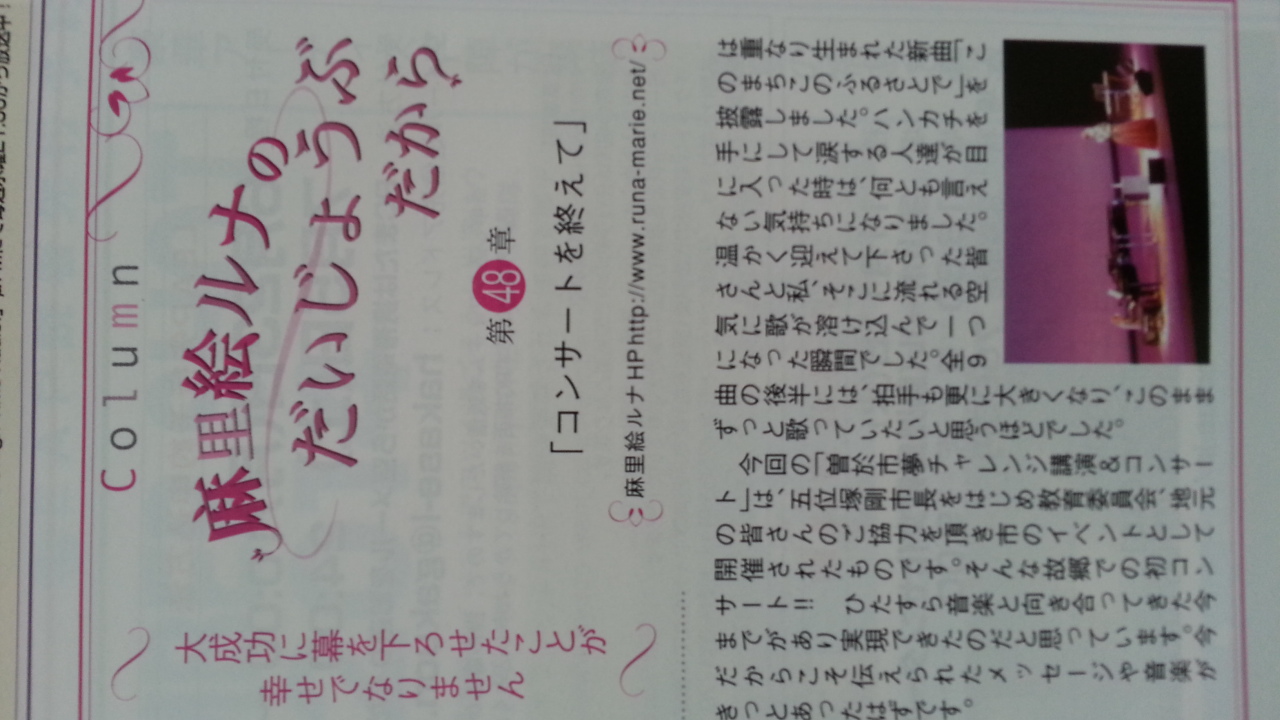 Column
麻里絵ルナの
だいじょうぶ
だから
第48章
「コンサートを終えて」
麻里絵ルナHPhttp://www.runa-marie.net/
は重なり生まれた新曲「こ
のまちこのふるさとで」を
披露しました。ハンカチを
手にして涙する人達が目
に入った時は、何とも言え
ない気持ちになりました。
温かく迎えて下さった皆
さんと私、そこに流れる空
気に歌が溶け込んで一つ
になった瞬間でした。全9
曲の後半には、拍手も更に大きくなり、このまま
ずっと歌っていたいと思うほどでした。
今回の「曽於市夢チャレンジ講演&コンサー
ト」は、五位塚剛市長をはじめ教育委員会、地元
の皆さんのご協力を頂き市のイベントとして
開催されたものです。そんな故郷での初コン
サート!! ひたすら音楽と向き合ってきた今
までがあり実現できたのだと思っています。今
だからこそ伝えられたメッセージや音楽が
きっとあったはずです。
大成功に幕を下ろせたことが
幸せでなりません